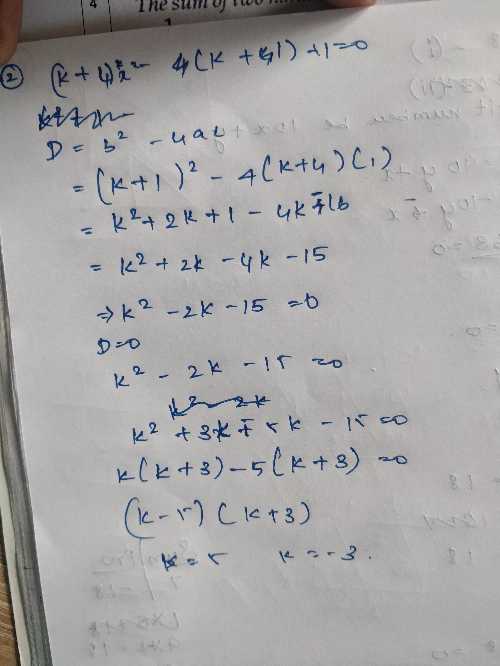 4 The sum of two
② (k+4)x² - 4(k+1)+1=0
D = b² - 4ac
= (k+1)² - 4(k+4)(1)
= k² + 2k + 1 - 4k - 16
= k² + 2k - 4k - 15
⇒ k² - 2k - 15 = 0
D=0
k² - 2k - 15 = 0
k² - 2k
k² + 3k - 5k - 15 = 0
k(k+3) - 5(k+3) = 0
(k-5)(k+3)
k = 5 k = -3.